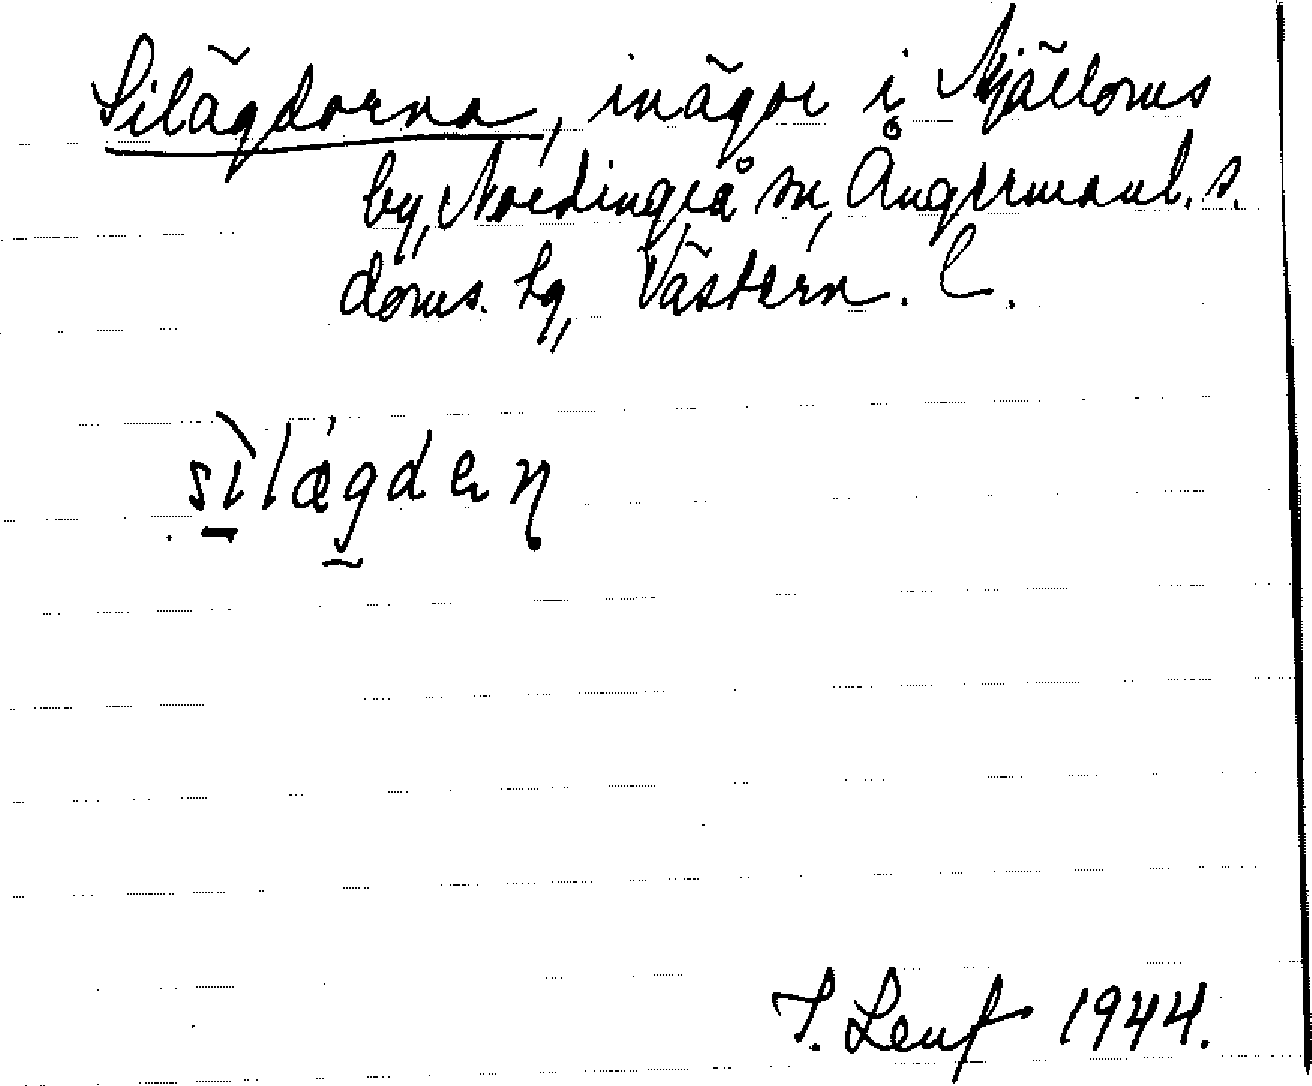 Silägdorna, inägor i Mjälloms
by, Nordingrå sn, Ångermanl. s.
doms. hg, Västern. l.
sìlǽgdan
T. Leuf 1944.